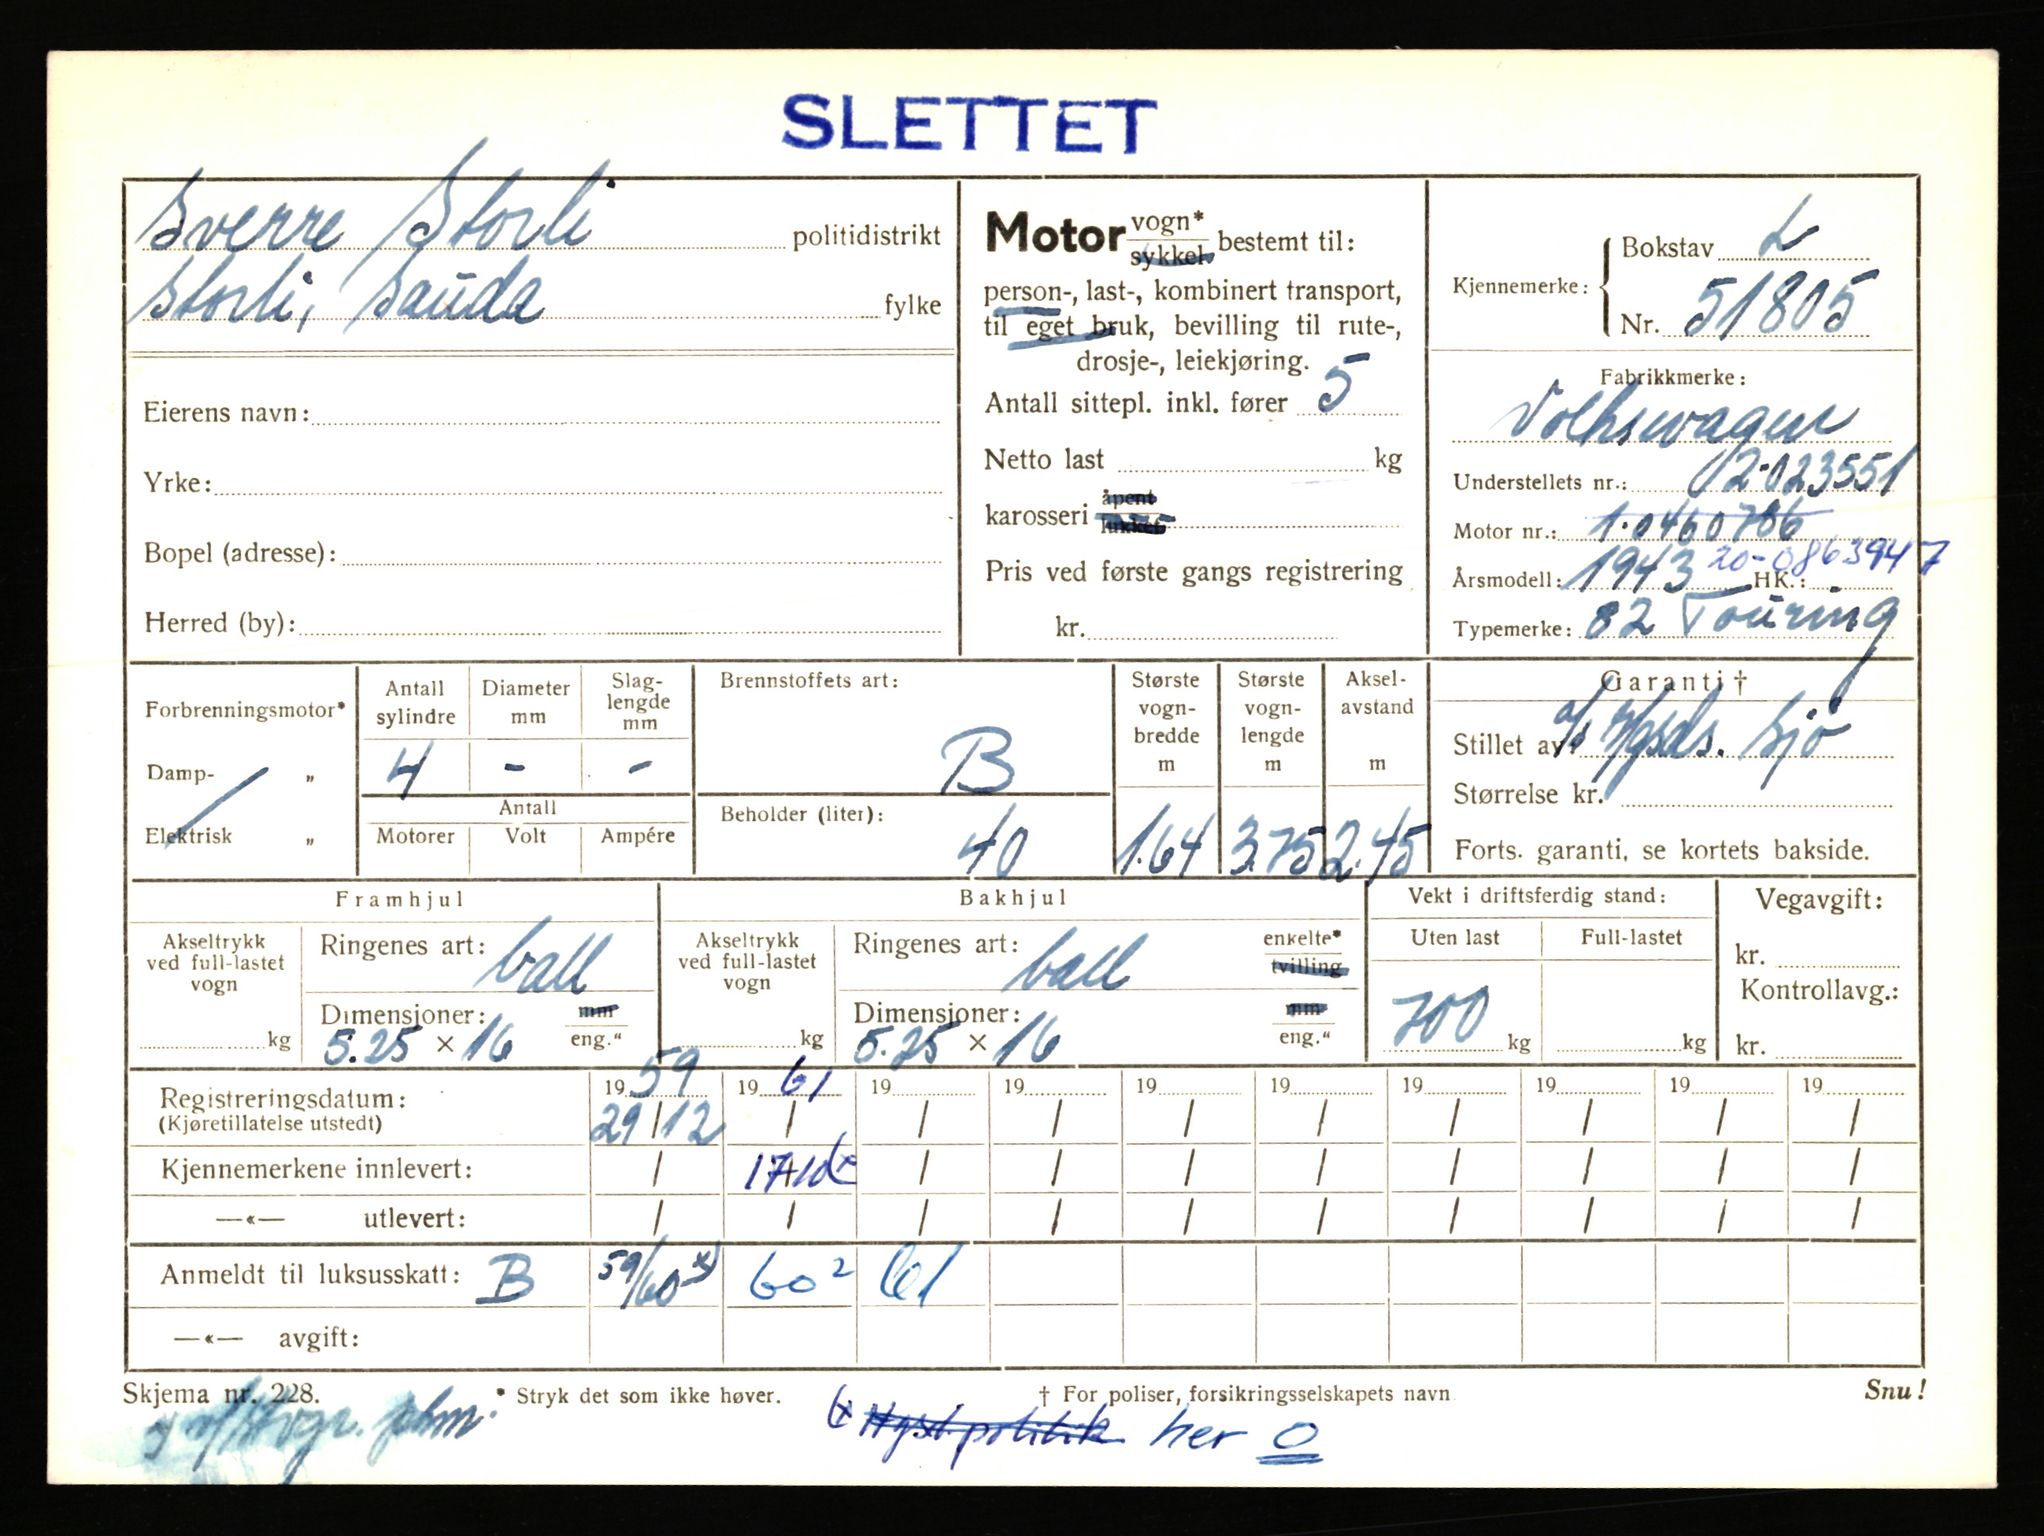 SLETTET
Sverre Storli politidistrikt
Storli, Sauda fylke
Eierens navn:
Yrke:
Bopel (adresse):
Herred (by):
Motor vogn* sykkel bestemt til:
person-, last-, kombinert transport,
til eget bruk, bevilling til rute-,
drosje-, leiekjøring.
Antall sittepl. inkl. fører 5
Netto last kg
karosseri åpent lukket
Pris ved første gangs registrering
kr.
Kjennemerke: Bokstav L
Nr. 51805
Fabrikkmerke:
Volkswagen
Understellets nr.: 02-023551
Motor nr.: 1.0460786
20-0863947
Årsmodell: 1943 HK.:
Typemerke: 82 Touring
Forbrenningsmotor*
Damp- „
Elektrisk „
Antall sylindre Diameter mm Slag-lengde mm
4 - -
Antall
Motorer Volt Ampére
Brennstoffets art:
B
Beholder (liter):
40
Største vogn-bredde m Største vogn-lengde m Aksel-avstand m
1.64 3.75 2.45
Garanti †
Stillet av sjø
Størrelse kr.
Forts. garanti, se kortets bakside.
Framhjul
Akseltrykk ved full-lastet vogn
kg
Ringenes art: ball
Dimensjoner: mm
5.25 × 16 eng."
Bakhjul
Akseltrykk ved full-lastet vogn
kg
Ringenes art: ball enkelte* tvilling
Dimensjoner: mm
5.25 × 16 eng."
Vekt i driftsferdig stand:
Uten last Full-lastet
700 kg kg
Vegavgift:
kr.
Kontrollavg.:
kr.
19 59 19 61 19 19 19 19 19 19 19 19
Registreringsdatum: 29/12 / / / / / / / / /
(Kjøretillatelse utstedt)
Kjennemerkene innlevert: / 17/10 / / / / / / / /
—«— utlevert: / / / / / / / / / /
Anmeldt til luksusskatt: B 59/60 x) 60² 61
—«— avgift:
Skjema nr. 228. * Stryk det som ikke høver. † For poliser, forsikringsselskapets navn Snu!
her 0